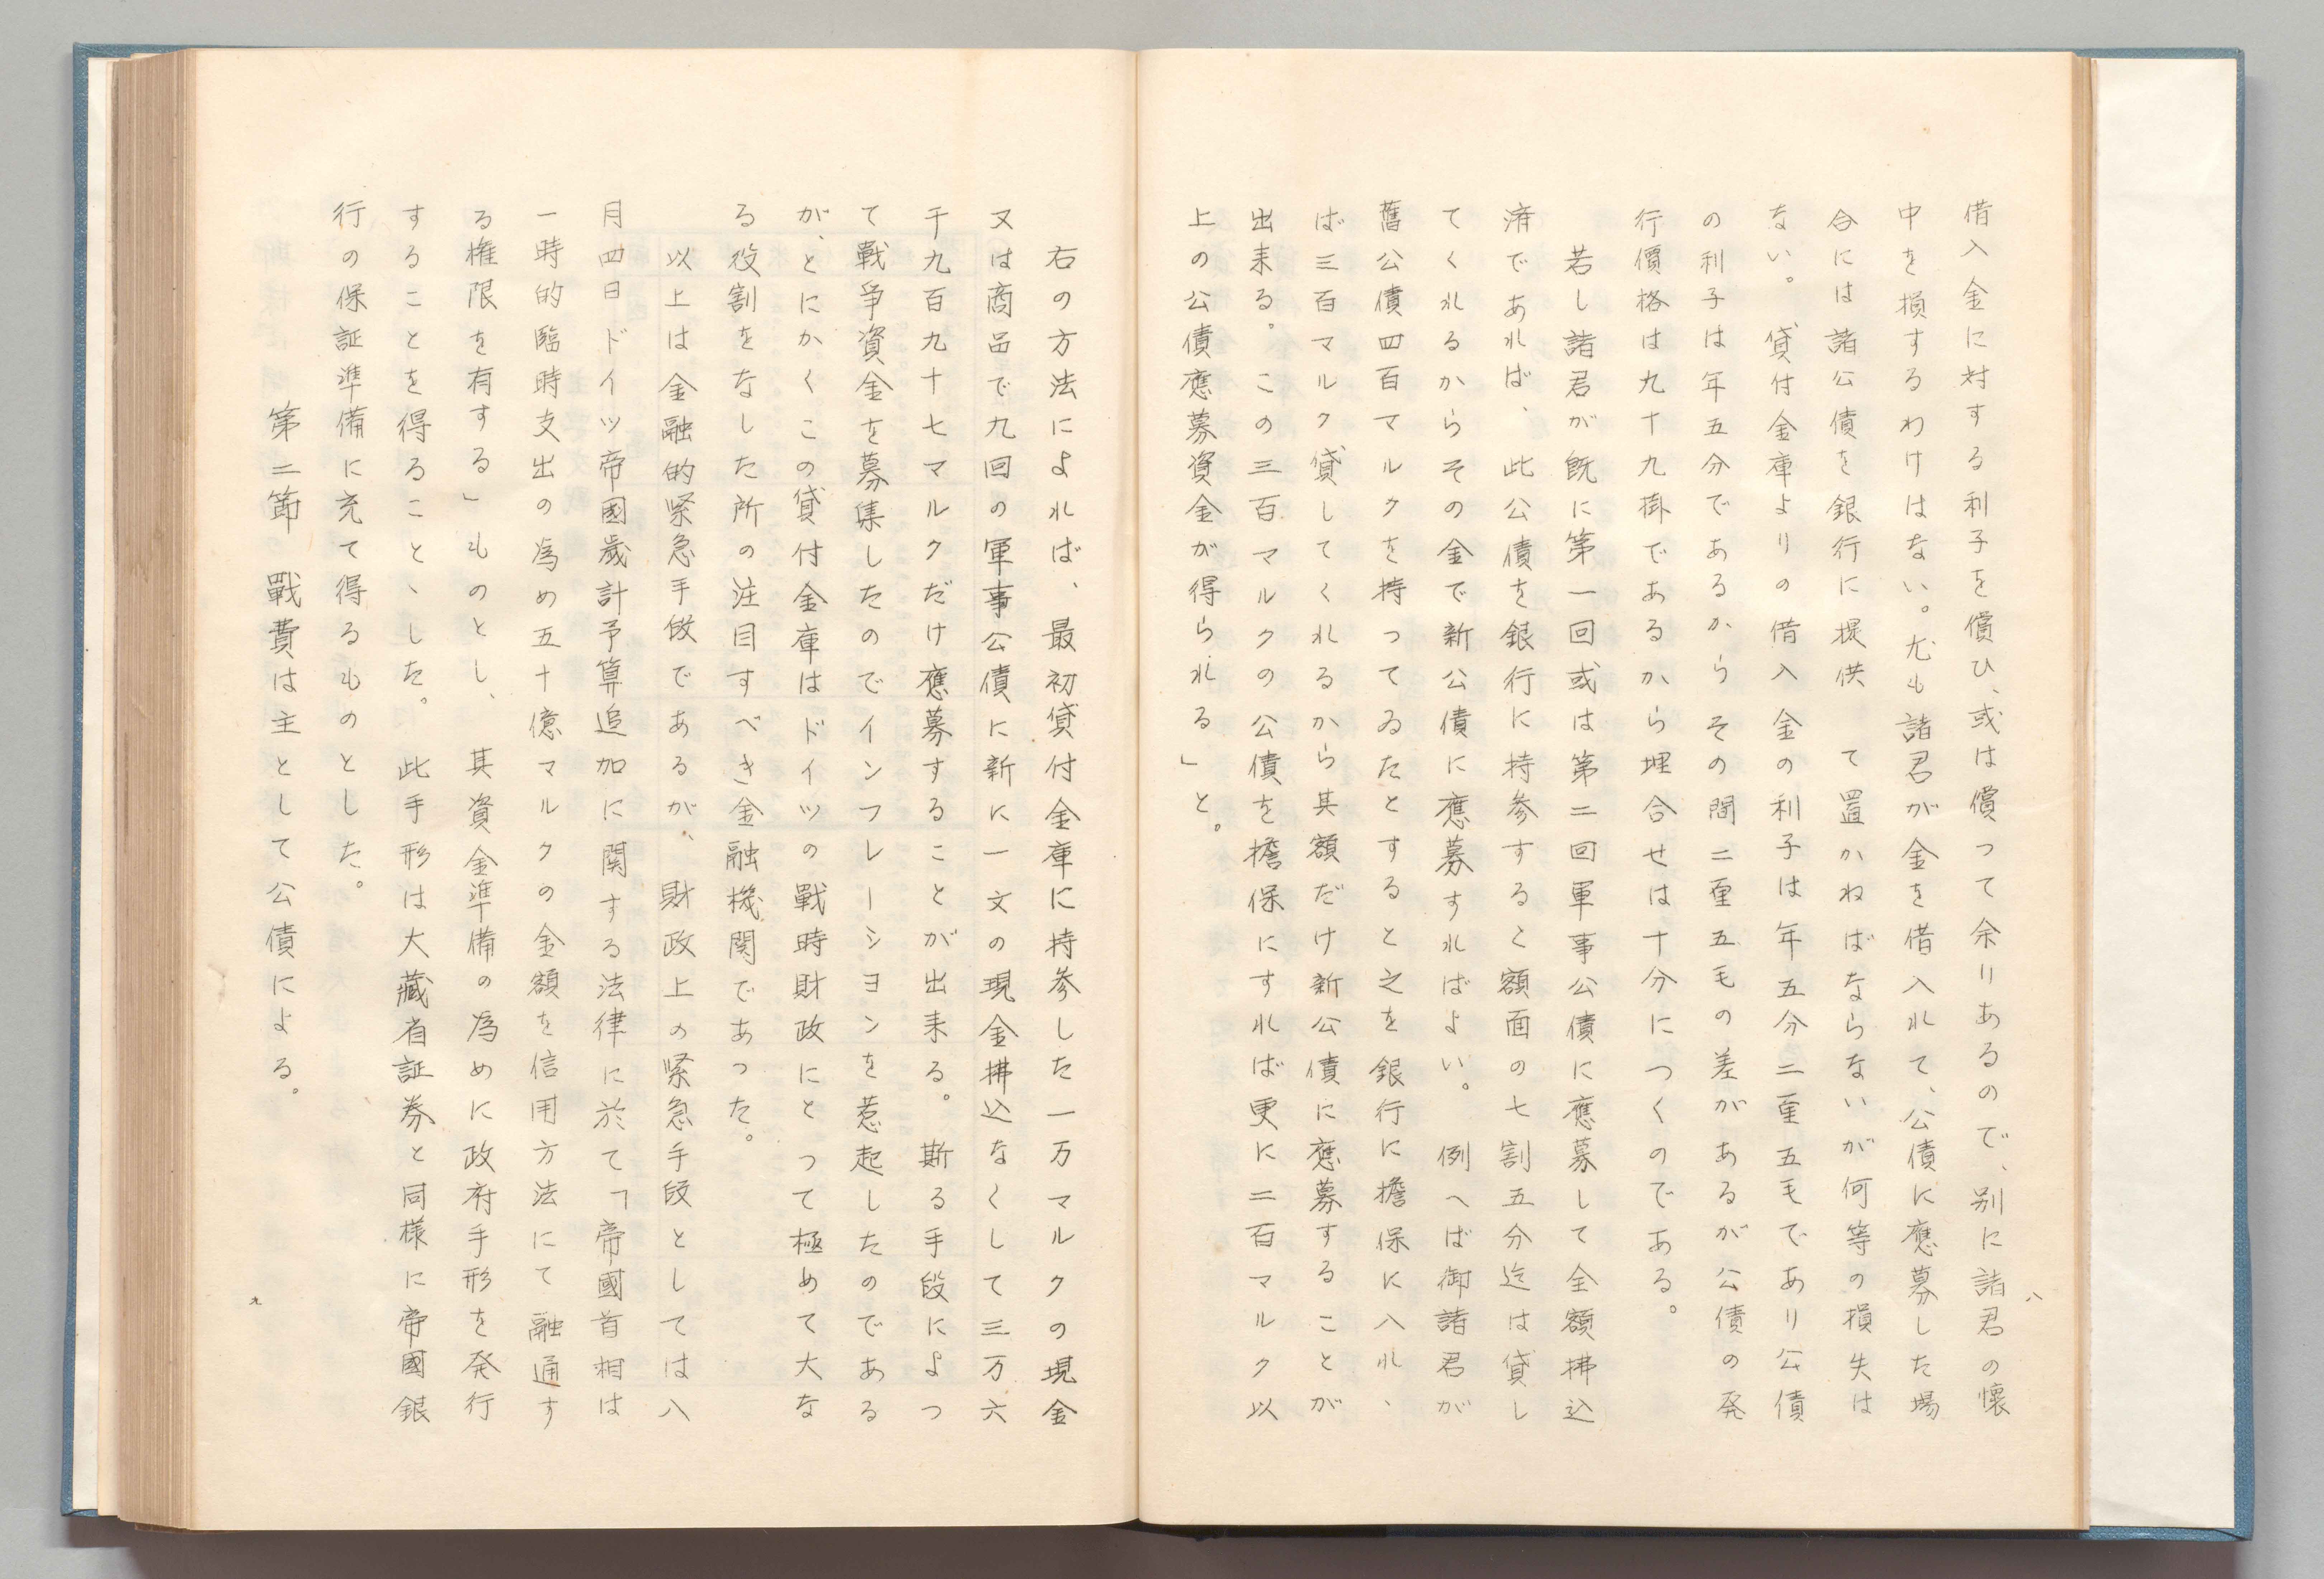 八
借入金に対する利子を償ひ、或は償つて余りあるので、別に諸君の懐
中を損するわけはない。尤も諸君が金を借入れて、公債に應募した場
合には諸公債を銀行に提供　て置かねばならないが何等の損失は
ない。貸付金庫よりの借入金の利子は年五分二厘五毛であり公債
の利子は年五分であるからその間二厘五毛の差があるが公債の発
行價格は九十九掛であるから埋合せは十分につくのである。
若し諸君が既に第一回或は第二回軍事公債に應募して全額拂込
済であれば、此公債を銀行に持参すると額面の七割五分迄は貸し
てくれるからその金で新公債に應募すればよい。例へば御諸君が
舊公債四百マルクを持つてゐたとすると之を銀行に擔保に入れ、
ば三百マルク貸してくれるから其額だけ新公債に應募することが
出来る。この三百マルクの公債を擔保にすれば更に二百マルク以
上の公債應募資金が得られる」と。
右の方法によれば、最初貸付金庫に持参した一万マルクの現金
又は商品で九回の軍事公債に新に一文の現金拂込なくして三万六
千九百九十七マルクだけ應募することが出来る。斯る手段によつ
て戰爭資金を募集したのでインフレーシヨンを惹起したのである
が、とにかくこの貸付金庫はドイツの戰時財政にとつて極めて大な
る役割をなした所の注目すべき金融機関であつた。
以上は金融的緊急手段であるが、財政上の緊急手段としては八
月四日ドイツ帝國歳計予算追加に関する法律に於て「帝國首相は
一時的臨時支出の為め五十億マルクの金額を信用方法にて融通す
る権限を有する」ものとし、其資金準備の為めに政府手形を発行
することを得ることゝした。此手形は大藏省証券と同様に帝國銀
行の保証準備に充て得るものとした。
第二節　戰費は主として公債による。
九